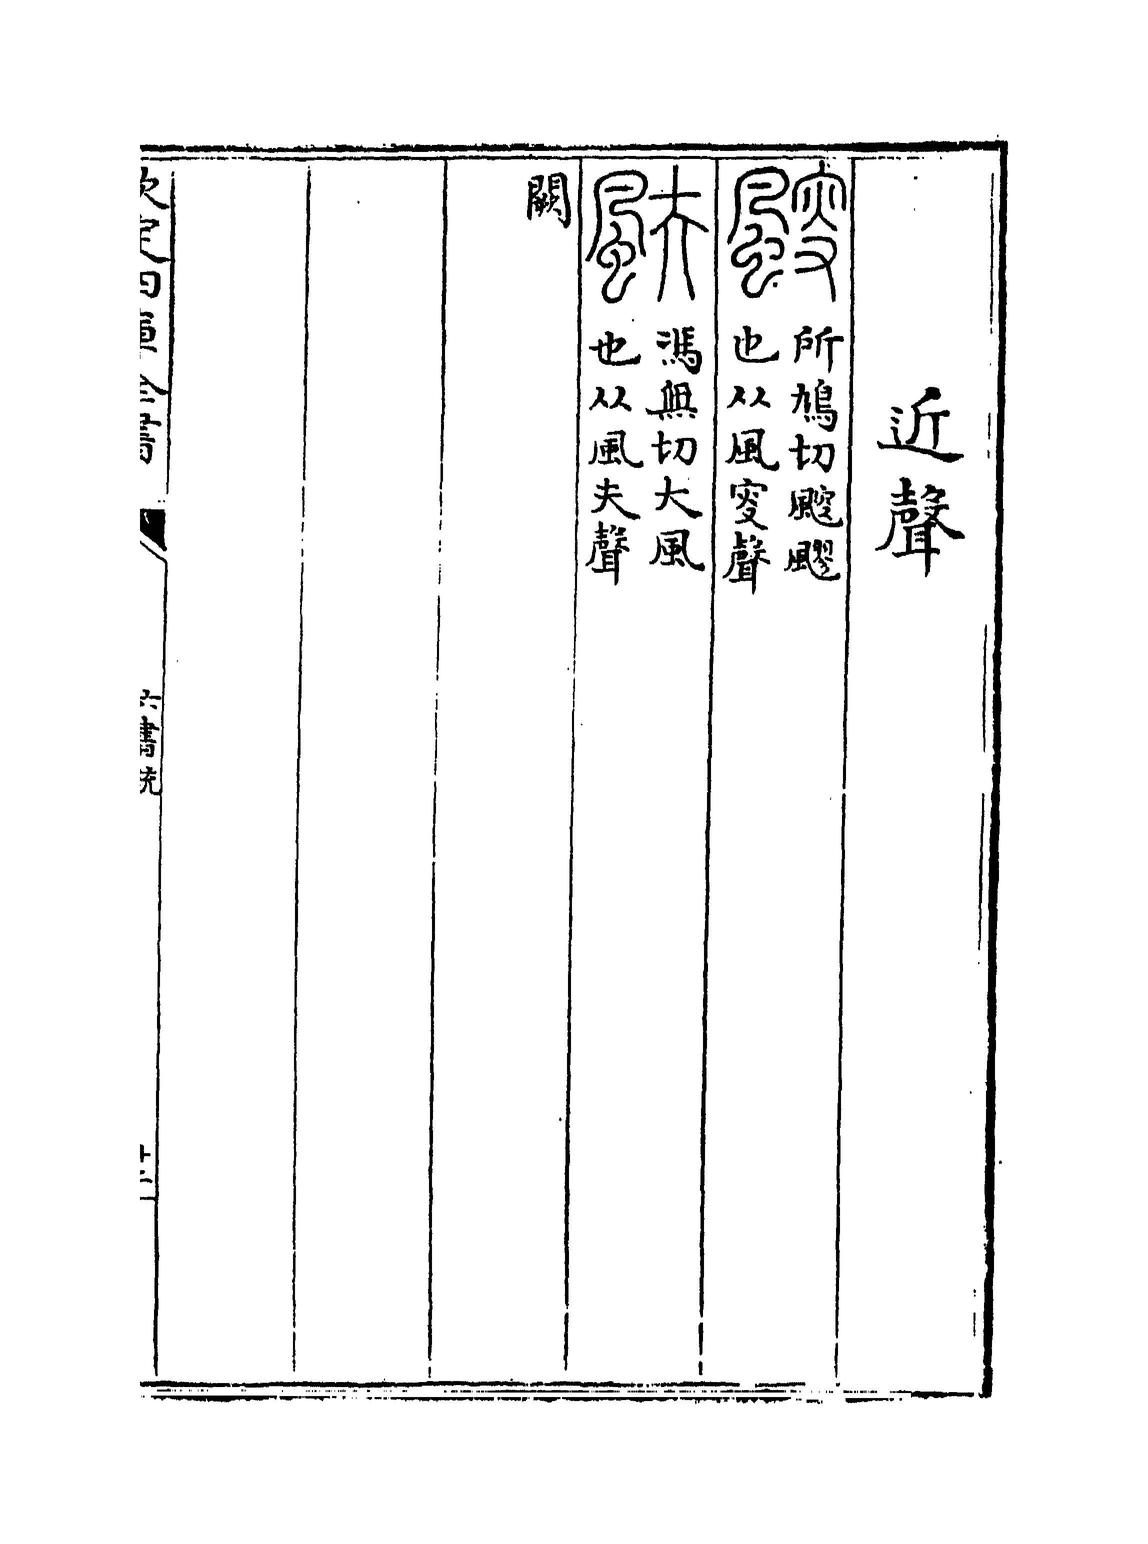 近聲
颼 所鳩切颼飂
也从風叜聲
颫 馮無切大風
也从風夫聲
闕
欽定四庫全書
六書統